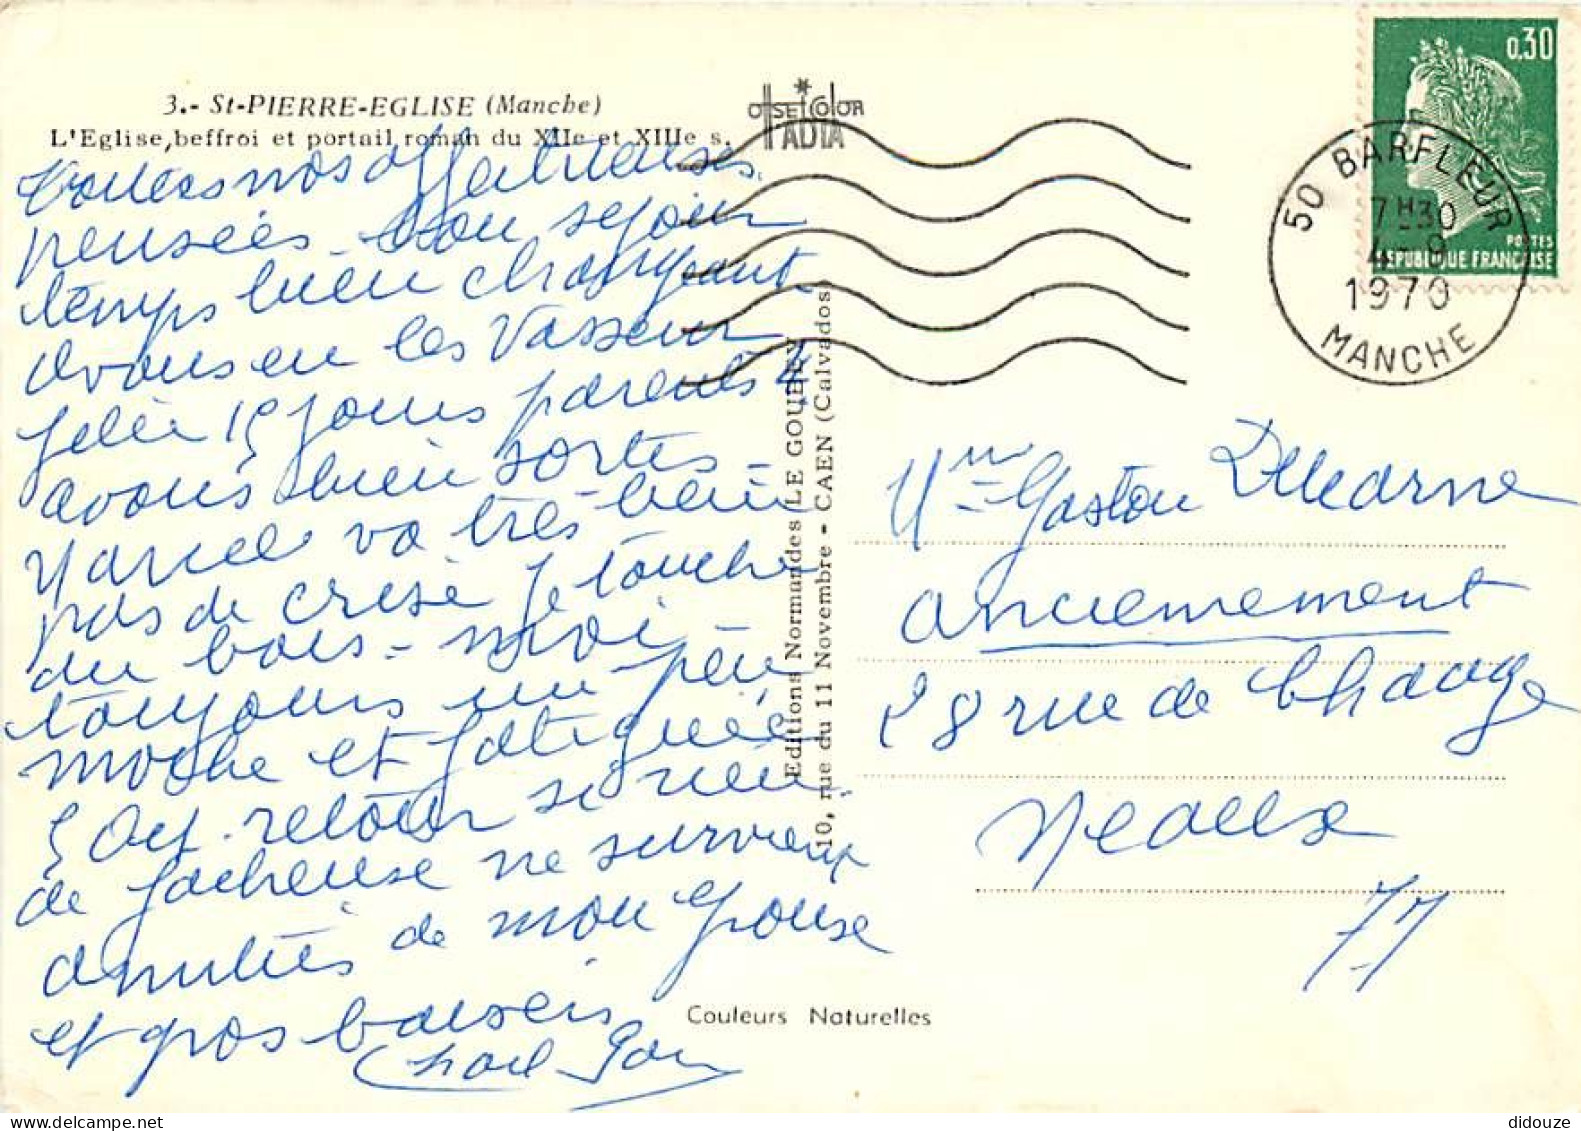 3.- St-PIERRE-EGLISE (Manche)
L'Eglise, beffroi et portail roman du XIIe et XIIIe s.
OFFSET COLOR
IADIA
0,30
POSTES
REPUBLIQUE FRANCAISE
50 BARFLEUR
7H30
4 - 9
1970
MANCHE
Toutes nos affectueuses
pensées bon sejour
temps bien changeant
avons eu les Vasseur
15 jours parents 4
avons bien sortes -
Marcel va très bien
pas de crise je touche
du bois - moi
toujours un peu
moche et fatiguée
5 retour si rien
de facheuse ne survient
amitiés de mon
et gros baisers
Editions Normandes LE GOUBEY
10, rue du 11 Novembre - CAEN (Calvados)
Mme Gaston Delearne
anciennement
28 rue de Chaage
Meaux
77
Couleurs Naturelles
didouze